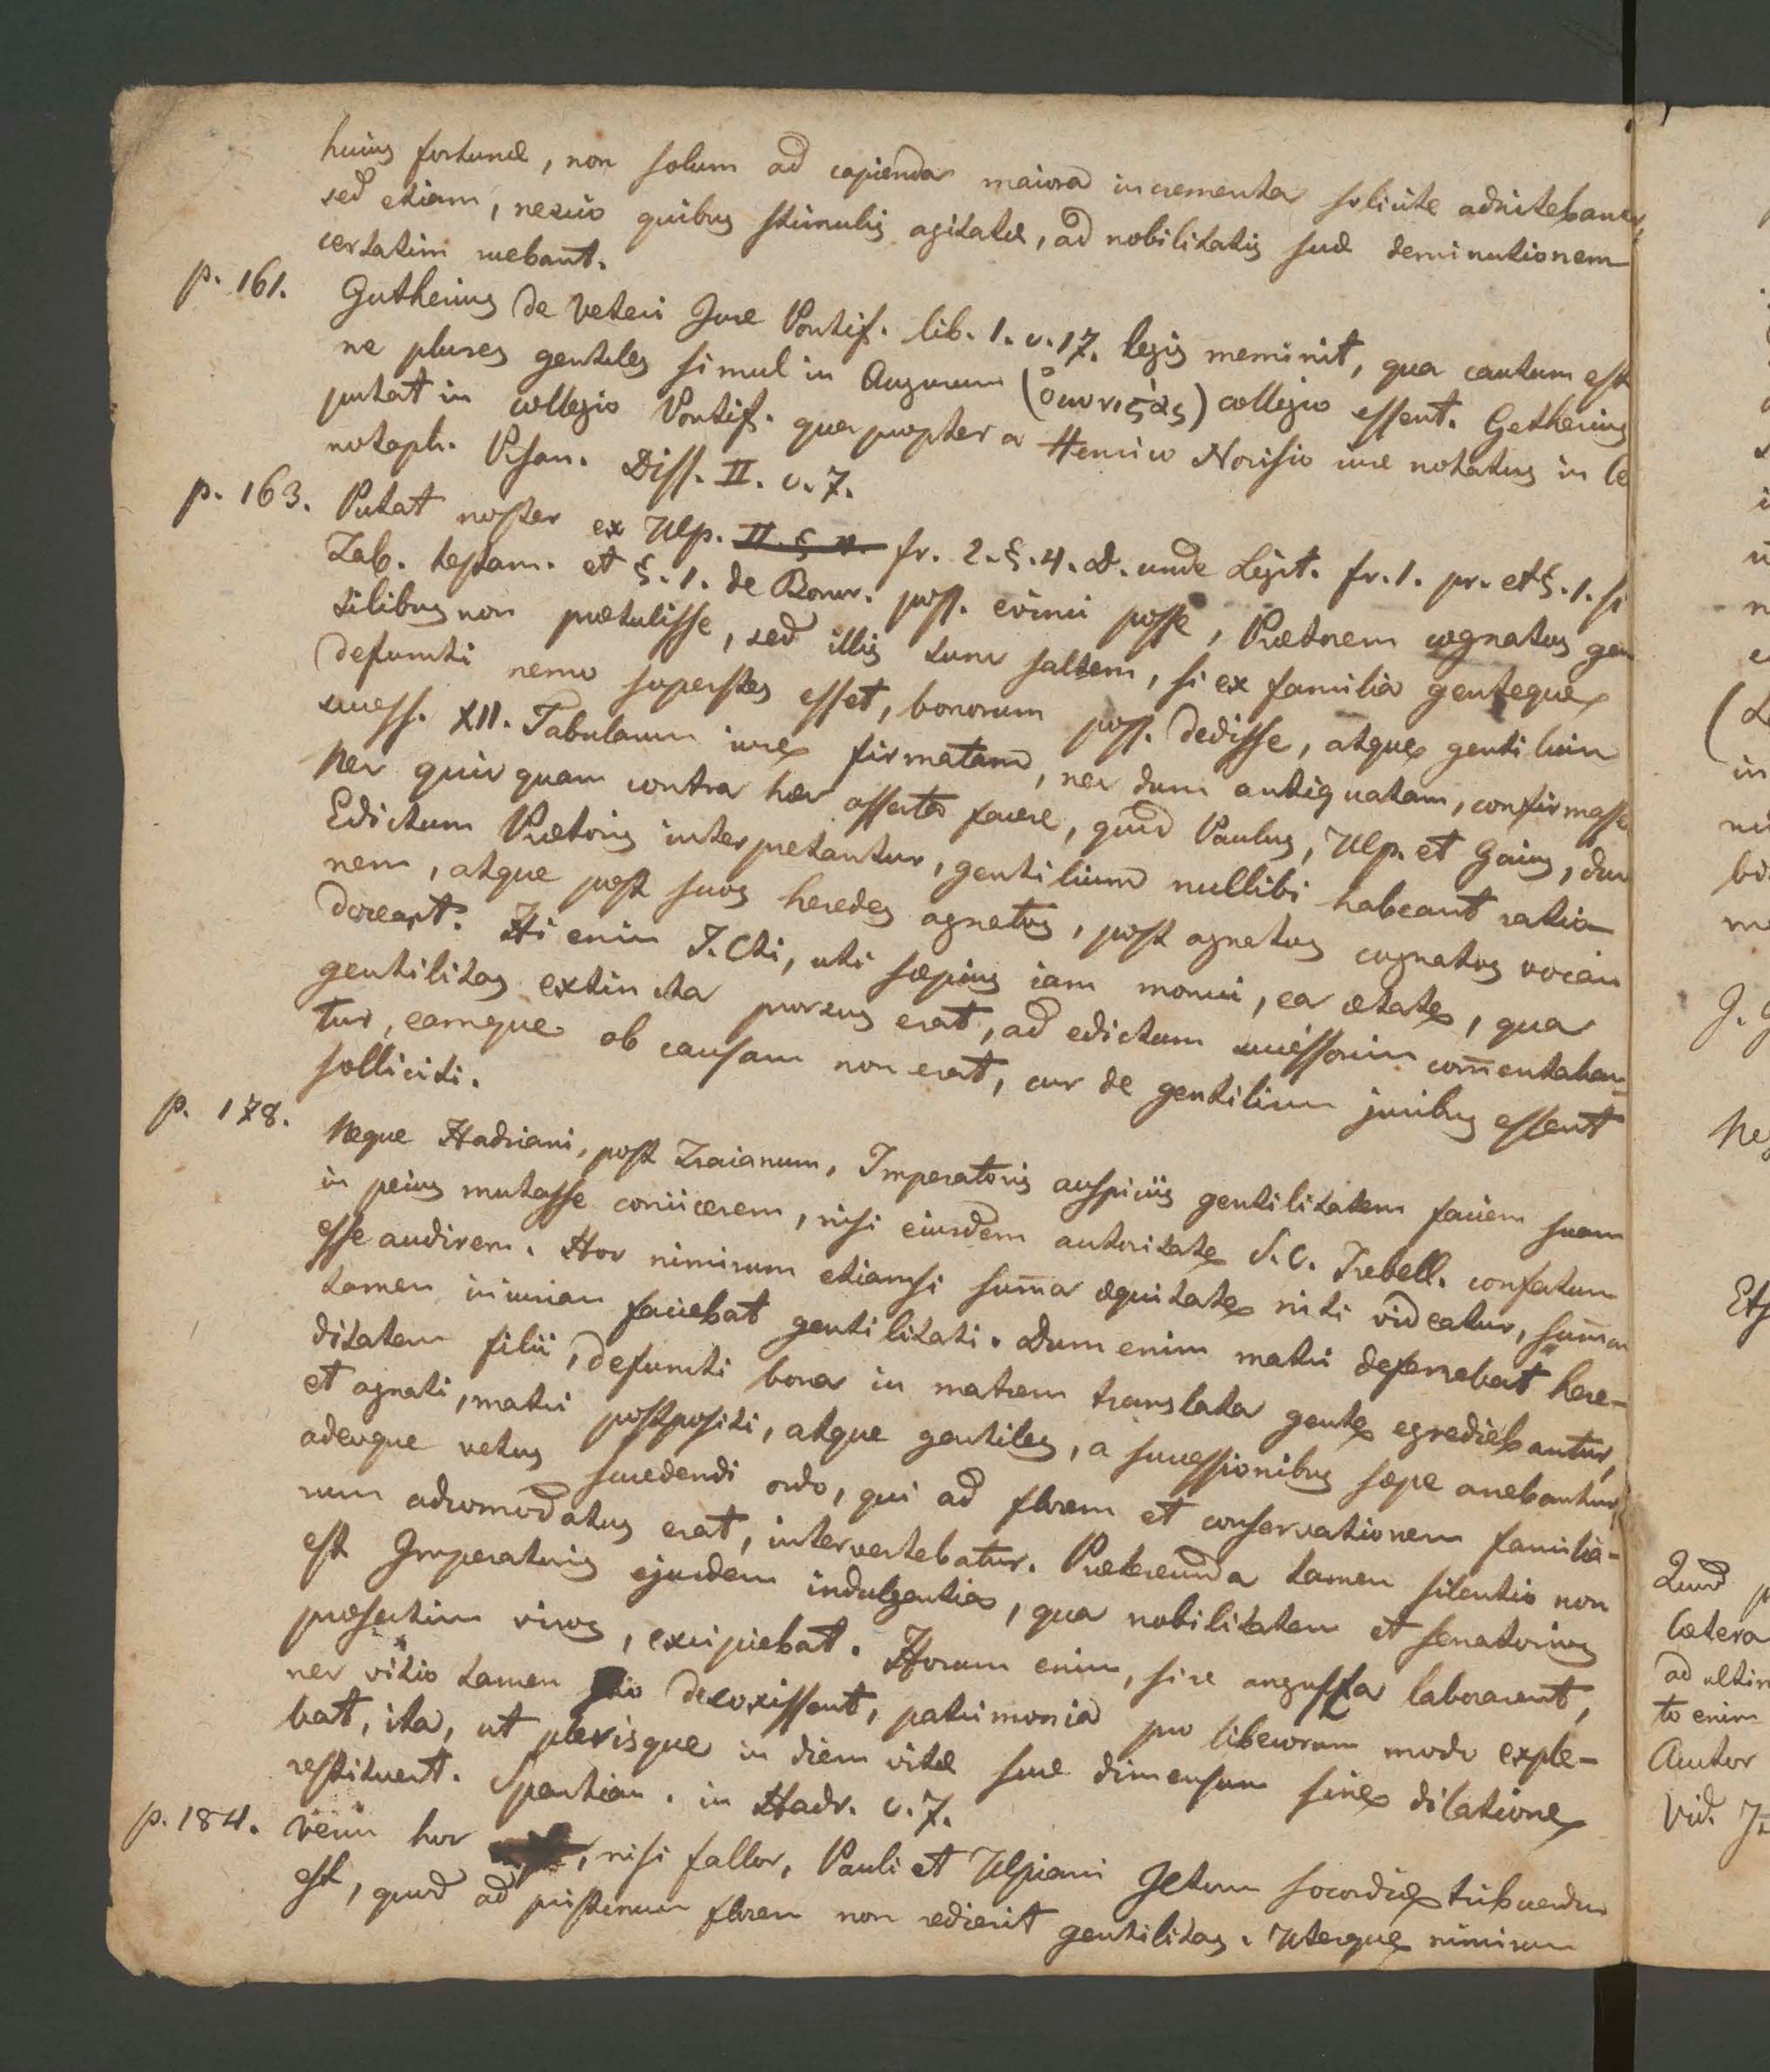 huius fortunæ, non solum ad capienda maiora incrementa solicite adnitebantur,
sed etiam, nescio quibus stimulis agitatæ, ad nobilitatis suæ deminutionem
certatim ruebant.
p. 161. Gutherius de Veteri Jure Pontif. lib. 1. c. 17. legis meminit, qua cautum est
ne plures gentiles simul in Augurum (ὀιωνιϛὰς) collegio essent. Getherius
putat in collegio Pontif. qua propter a Henrico Norisio iure notatus in Ce
notaph. Pisan. Diss. II. c. 7.
p. 163. Putat noster ex Ulp. fr. 2. §. 4. D. unde Legit. fr. 1. pr. et §. 1. si
Tab. testam. et §. 1. de Bonor. poss. evinci posse, Prætorem cognatos gen
tilibus non prætulisse, sed illis tum saltem, si ex familia genteque
defuncti nemo superstes esset, bonorum poss. dedisse, atque gentilium
success. XII. Tabularum iure firmatam, nec dum antiquatam, confirmasse
Nec quicquam contra hæc asserta facere, quod Paulus, Ulp. et Gaius, dum
Edictum Prætoris interpretantur, gentilium nullibi habeant ratio-
nem, atque post suos heredes agnatos, post agnatos cognatos vocari
doceant. Hi enim J. Cti, uti sæpius iam monui, ea ætate, qua
gentilitas extincta prorsus erat, ad edictum successorium com̄entaban-
tur, eamque ob causam non erat, cur de gentilium juribus essent
solliciti.
p. 178. Neque Hadriani, post Traianum, Imperatoris auspiciis gentilitatem faciem suam
in peius mutasse coniicerem, nisi eiusdem autoritate S. C. Trebell. confatum
esse audirem. Hoc nimirum etiamsi sum̄a æquitate niti videatur, sum̄am
tamen iniuriam faciebat gentilitati. Dum enim matri deferebat here-
ditatem filii, defuncti bona in matrem translata gente egrediebantur,
et agnati, matri postpositi, atque gentiles, a successionibus sæpe arcebantur,
adeoque vetus succedendi ordo, qui ad florem et conservationem familia-
rum adcomodatus erat, intervertebatur. Prætereunda tamen silentio non
est Imperatoris ejusdem indulgentia, qua nobilitatem et senatorios
præsertim viros, excipiebat. Horum enim, si re angusta laborarent,
nec vitio tamen suo decoxissent, patrimonia pro liberorum modo exple-
bat, ita, ut plerisque in diem vitæ suæ dimensum sine dilatione
restitueret. Spartian. in Hadr. c. 7.
p. 184. hoc, nisi fallor, Pauli et Ulpiani Jctorum socordiæ tribuendum
est, quod ad pristinum florem non redierit gentilitas. Uterque nimirum